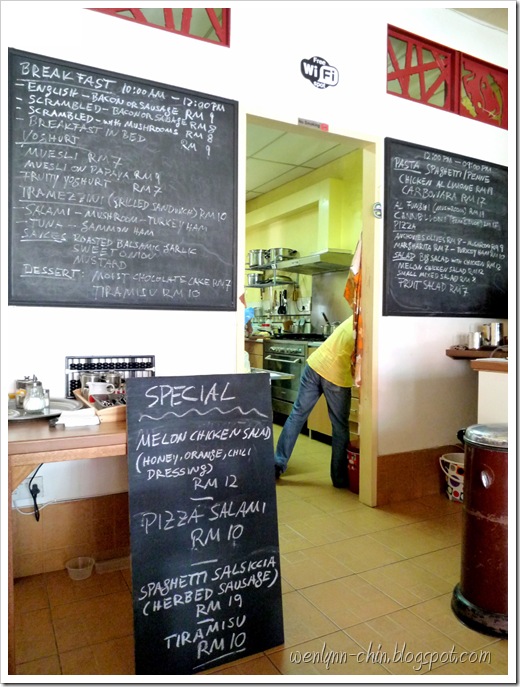 BREAKFAST 10:00 AM - 12:00 PM
- ENGLISH - BACON OR SAUSAGE RM 9
- SCRAMBLED - BACON OR SAUSAGE RM 8
- SCRAMBLED - WITH MUSHROOMS RM 8
- BREAKFAST IN BED RM 9
YOGHURT
MUESLI RM 7
MUESLI ON PAPAYA RM 9
FRUITY YOGHURT RM 7
TRAMEZZINI (GRILLED SANDWICH) RM 10
SALAMI - MUSHROOM - TURKEY HAM
TUNA - GAMMON HAM
SAUCES ROASTED BALSAMIC GARLIC
SWEET ONION
MUSTARD
DESSERT: MOIST CHOCOLATE CAKE RM 7
TIRAMISU RM 10
Free
WiFi
spot
No Smoking
PASTA SPAGHETTI / PENNE
CHICKEN AL LIMONE RM 18
CARBONARA RM 17
PIZZA
SALAD
MELON CHICKEN SALAD RM 12
SMALL MIXED SALAD RM 8
FRUIT SALAD RM 7
SPECIAL
MELON CHICKEN SALAD
(HONEY, ORANGE, CHILI
DRESSING)
RM 12
PIZZA SALAMI
RM 10
SPAGHETTI SALSICCIA
(HERBED SAUSAGE)
RM 19
TIRAMISU
RM 10
wenlynn-chin.blogspot.com